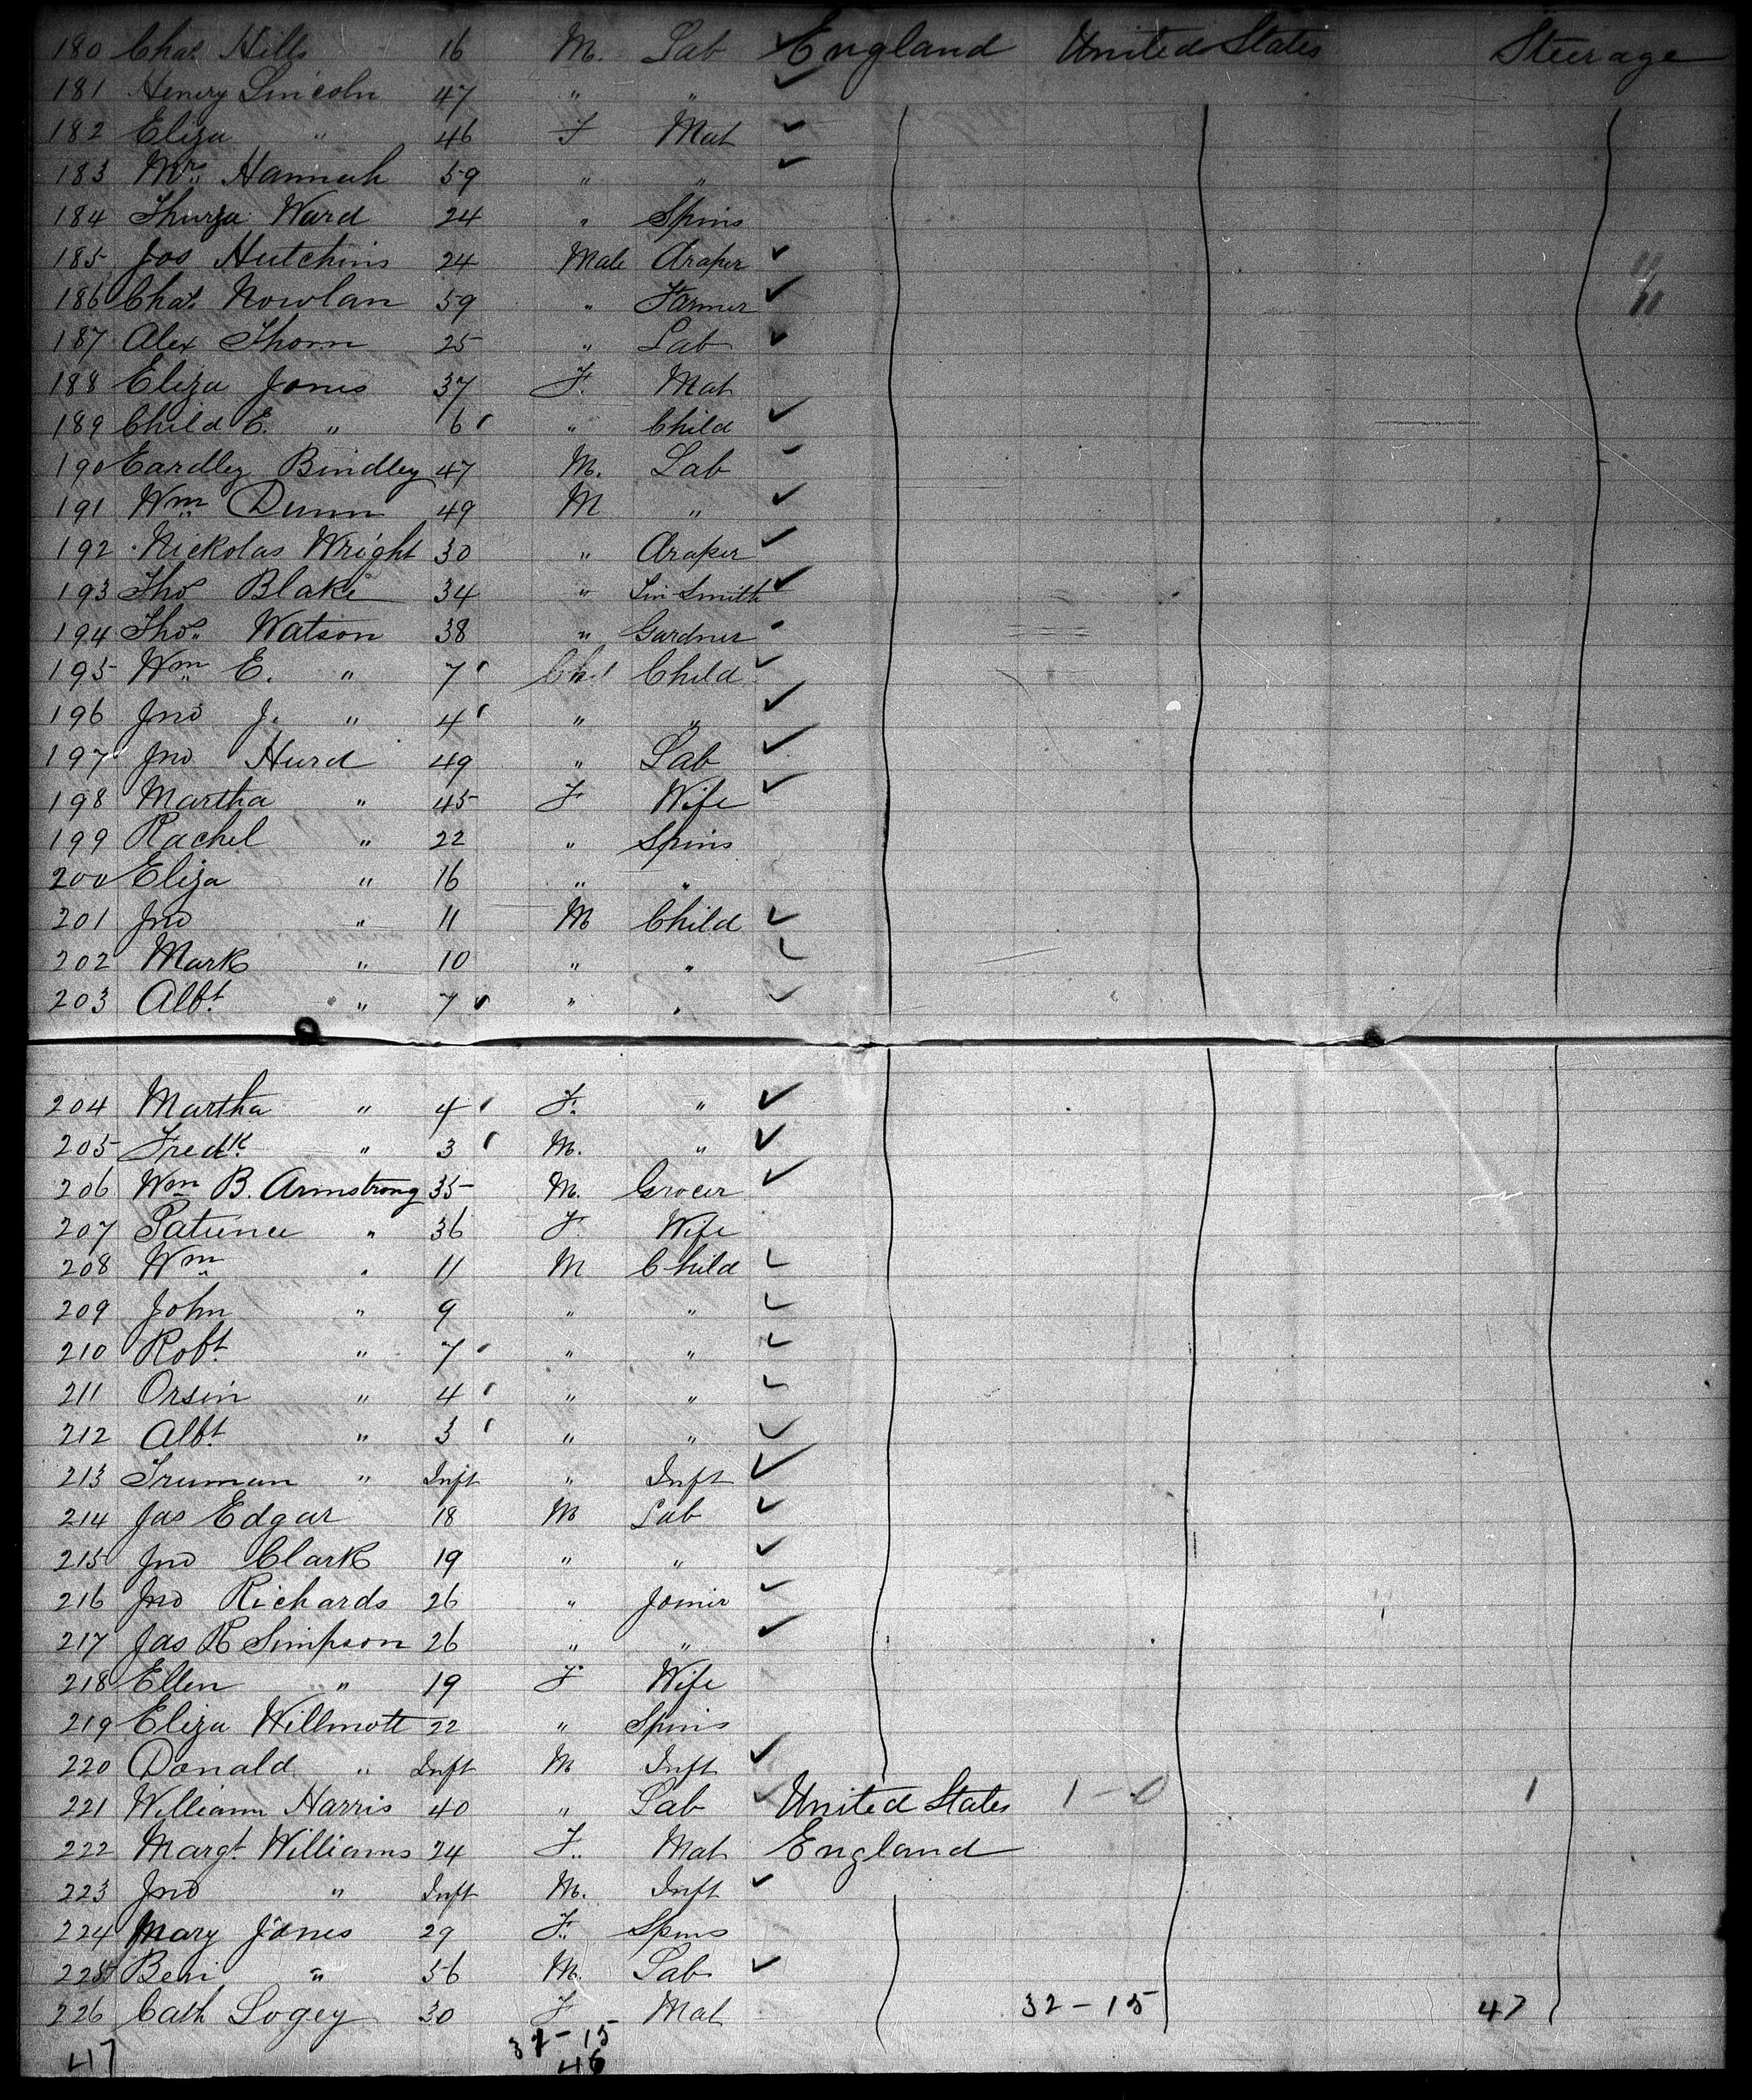 180 Chas. Hills 16 M. Lab England United States Steerage
181 Henery Lincoln 47 " "
182 Eliza " 46 F Mat
183 Mrs. Hannah 59 " "
184 Thurza Ward 24 " Spins
185 Jos Hutchins 24 Male Draper "
186 Chas. Nowlan 59 " Farmer "
187 Alex Thorn 25 " Lab
188 Eliza Jones 37 F. Mat
189 Child E. " 6 " Child
190 Eardley Bindley 47 M. Lab
191 Wm Dunn 49 M "
192 Nickolas Wright 30 " Draper
193 Thos Blake 34 " Tin Smith
194 Thos. Watson 38 " Gardner
195 Wm E. " 7 Child
196 Jno J. " 4 " "
197 Jno Hurd 49 " Lab
198 Martha " 45 F Wife
199 Rachel " 22 " Spins
200 Eliza " 16 " "
201 Jno " 11 M Child
202 Mark " 10 " "
203 Albt. " 7 " "
204 Martha " 4 F. "
205 Fredk. " 3 M. "
206 Wm B. Armstrong 35 M. Grocer
207 Patience " 36 F. Wife
208 Wm " 11 M Child
209 John " 9 " "
210 Robt. " 7 " "
211 Orsin " 4 " "
212 Albt. " 3 " "
213 Truman " Inft " Inft
214 Jas Edgar 18 M Lab
215 Jno Clark 19 " "
216 Jno Richards 26 " Joiner
217 Jas R Simpson 26 " "
218 Ellen " 19 F Wife
219 Eliza Willmott 22 " Spins
220 Donald " Inft M Inft
221 William Harris 40 " Lab United States 1-0 1
222 Margt. Williams 24 F. Mat England
223 Jno " Inft M. Inft
224 Mary Jones 29 F. Spins
225 Benj " 56 M. Lab
226 Cath Logey 30 F Mat 32-15 47
32-15
47 46